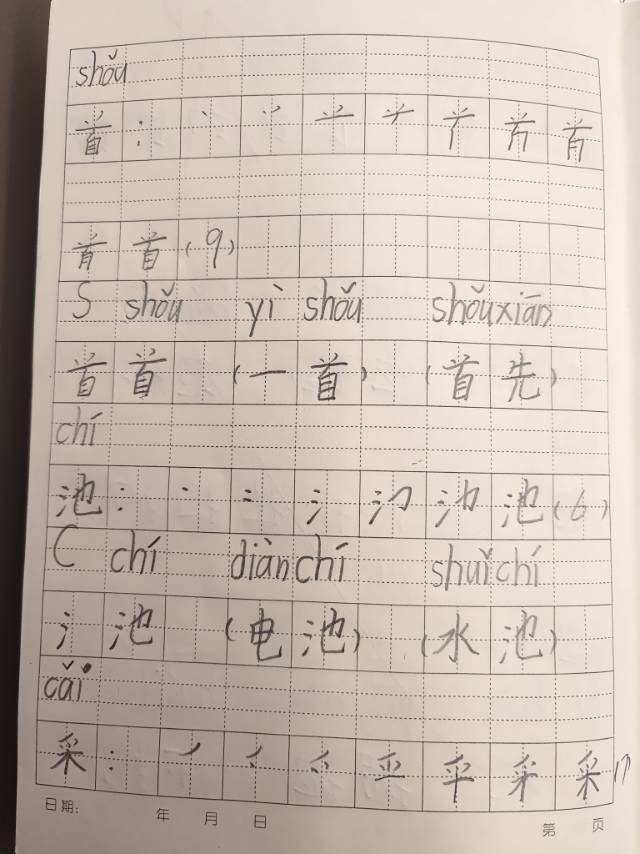 shǒu
首：
首 首（9）
S shǒu yì shǒu shǒuxiān
首 首 （一首）（首先）
chí
池： 氵 池（6）
C chí diànchí shuǐchí
氵 池 （电池）（水池）
cǎi
采： 采
日期： 年 月 日 第 页